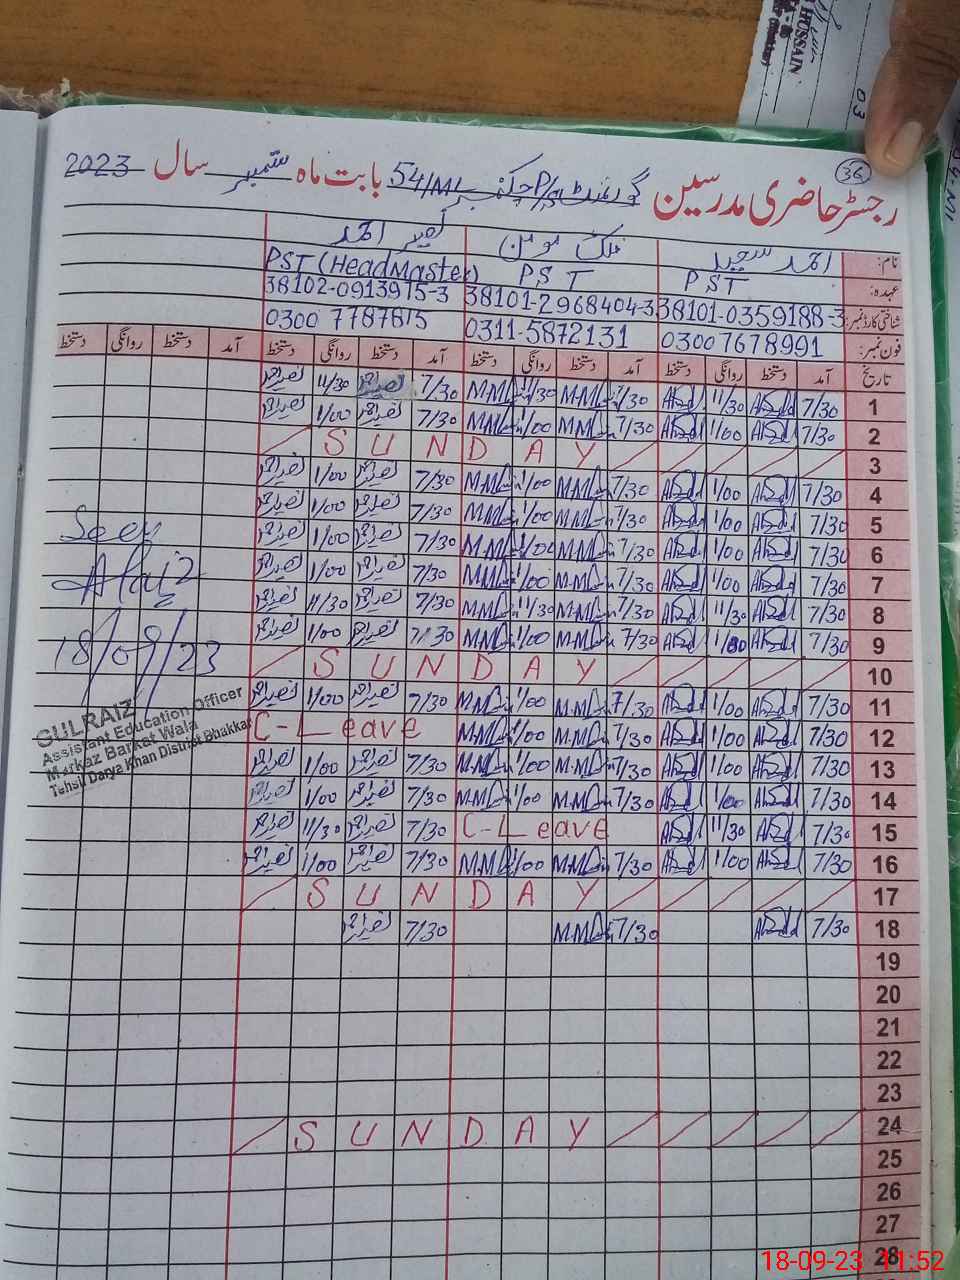 HUSSAIN
03
36
رجسٹر حاضری مدرسین گورنمنٹ P/S چکنمبر 54/ML بابت ماہ ستمبر سال 2023
نام: احمد سعید ملک مومن نصیر احمد
عہدہ: PST PST PST (HeadMaster)
شناختی کارڈ نمبر: 38101-0359188-3 38101-2968404-3 38102-0913975-3
فون نمبر: 03007678991 0311-5872131 0300 7787815
تاریخ آمد دستخط روانگی دستخط آمد دستخط روانگی دستخط آمد دستخط روانگی دستخط آمد دستخط روانگی دستخط
1 7/30 11/30 7/30 11/30 7/30 نصیر احمد 11/30 نصیر احمد
2 7/30 1/00 7/30 1/00 7/30 نصیر احمد 1/00 نصیر احمد
3 SUNDAY
4 7/30 1/00 7/30 1/00 7/30 نصیر احمد 1/00 نصیر احمد
5 7/30 1/00 7/30 1/00 7/30 نصیر احمد 1/00 نصیر احمد
6 7/30 1/00 7/30 1/00 7/30 نصیر احمد 1/00 نصیر احمد
7 7/30 1/00 7/30 1/00 7/30 نصیر احمد 1/00 نصیر احمد
8 7/30 11/30 7/30 11/30 7/30 نصیر احمد 11/30 نصیر احمد
9 7/30 1/00 7/30 1/00 7/30 نصیر احمد 1/00 نصیر احمد
10 SUNDAY
11 7/30 1/00 7/30 1/00 7/30 نصیر احمد 1/00 نصیر احمد
12 7/30 1/00 7/30 1/00 C-Leave
13 7/30 1/00 7/30 1/00 7/30 نصیر احمد 1/00 نصیر احمد
14 7/30 1/00 7/30 1/00 7/30 نصیر احمد 1/00 نصیر احمد
15 7/30 11/30 C-Leave 7/30 نصیر احمد 11/30 نصیر احمد
16 7/30 1/00 7/30 1/00 7/30 نصیر احمد 1/00 نصیر احمد
17 SUNDAY
18 7/30 7/30 7/30 نصیر احمد
19
20
21
22
23
24 SUNDAY
25
26
27
28
Seen
18/09/23
GULRAIZ
Assistant Education Officer
Markaz Barkat Wala
Tehsil Darya Khan District Bhakkar
18-09-23 11:52